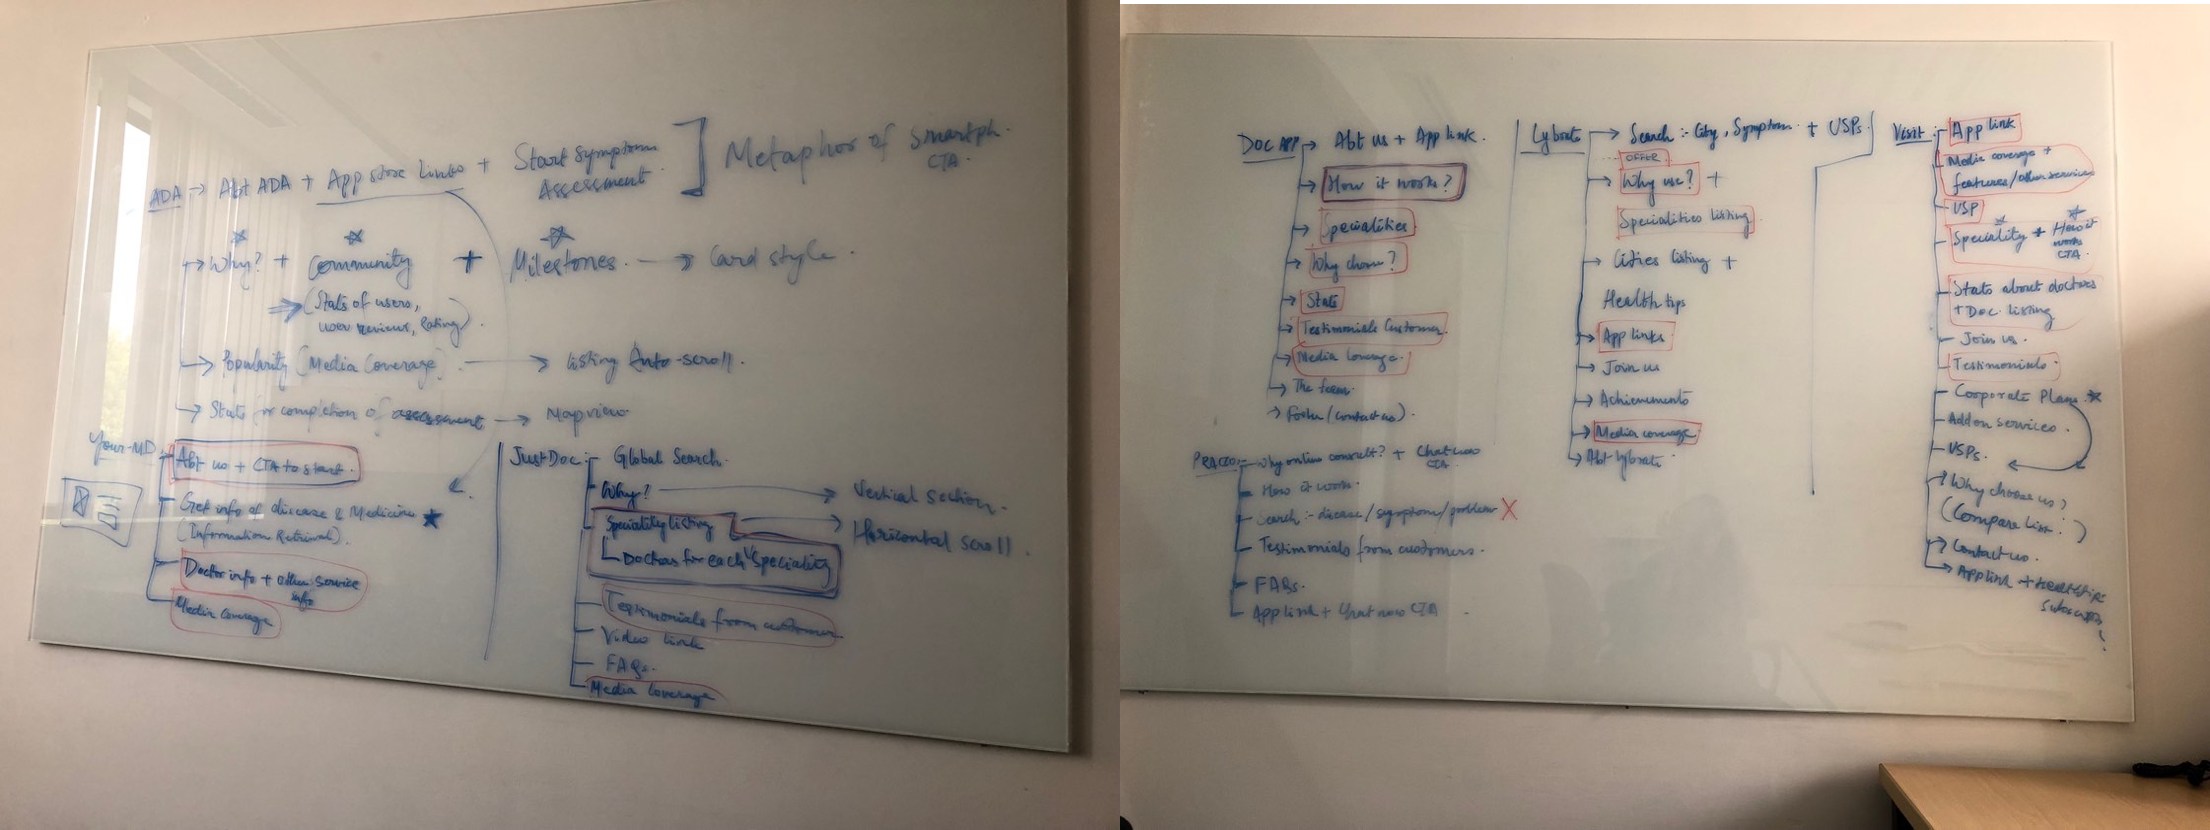 ADA → Abt ADA + App store links + Start Symptom
Assessment. ] Metaphor of Smartph.
CTA.
→ Why? + Community + Milestones. → Card style.
(Stats of users,
user reviews, Rating).
→ Popularity (Media Coverage) → listing Auto-scroll.
→ Stats for completion of assessment → Mapview
Your-MD
Abt us + CTA to start.
Get info of disease & Medicine ★
(Information Retrieval).
Doctor info + other service
info
Media Coverage
JustDoc :- Global Search.
Why? → Vertical section.
Speciality listing → Horizontal scroll.
Doctors for each Speciality
Testimonials from customer
Video link
FAQs.
Media Coverage
DOC APP → Abt us + App link.
→ How it works?
→ Specialities
→ Why choose?
→ Stats
→ Testimonials Customer.
→ Media Coverage.
→ The
→ Footer (contact us).
PRACTO - Why online consult? + Chat now
CTA.
How it work.
Search :- disease/symptom/problem X
Testimonials from customers.
FAQs.
App link + Chat now CTA
Lybrate → Search :- City, Symptom. + USPs.
OFFER
→ Why use? +
Specialities listing
→ Cities listing +
Health tips
→ App links.
→ Join us
→ Achievements
→ Media coverage
→ Abt lybrate
Visit :- App link
Media coverage +
features/other services
USP
Speciality + How it
works
CTA.
Stats about doctors
+ Doc. listing
Join us.
Testimonials.
Corporate Plans ★
Add on services.
USPs.
→ Why choose us?
(Compare list :)
→ Contact us.
→ App link + Health tips